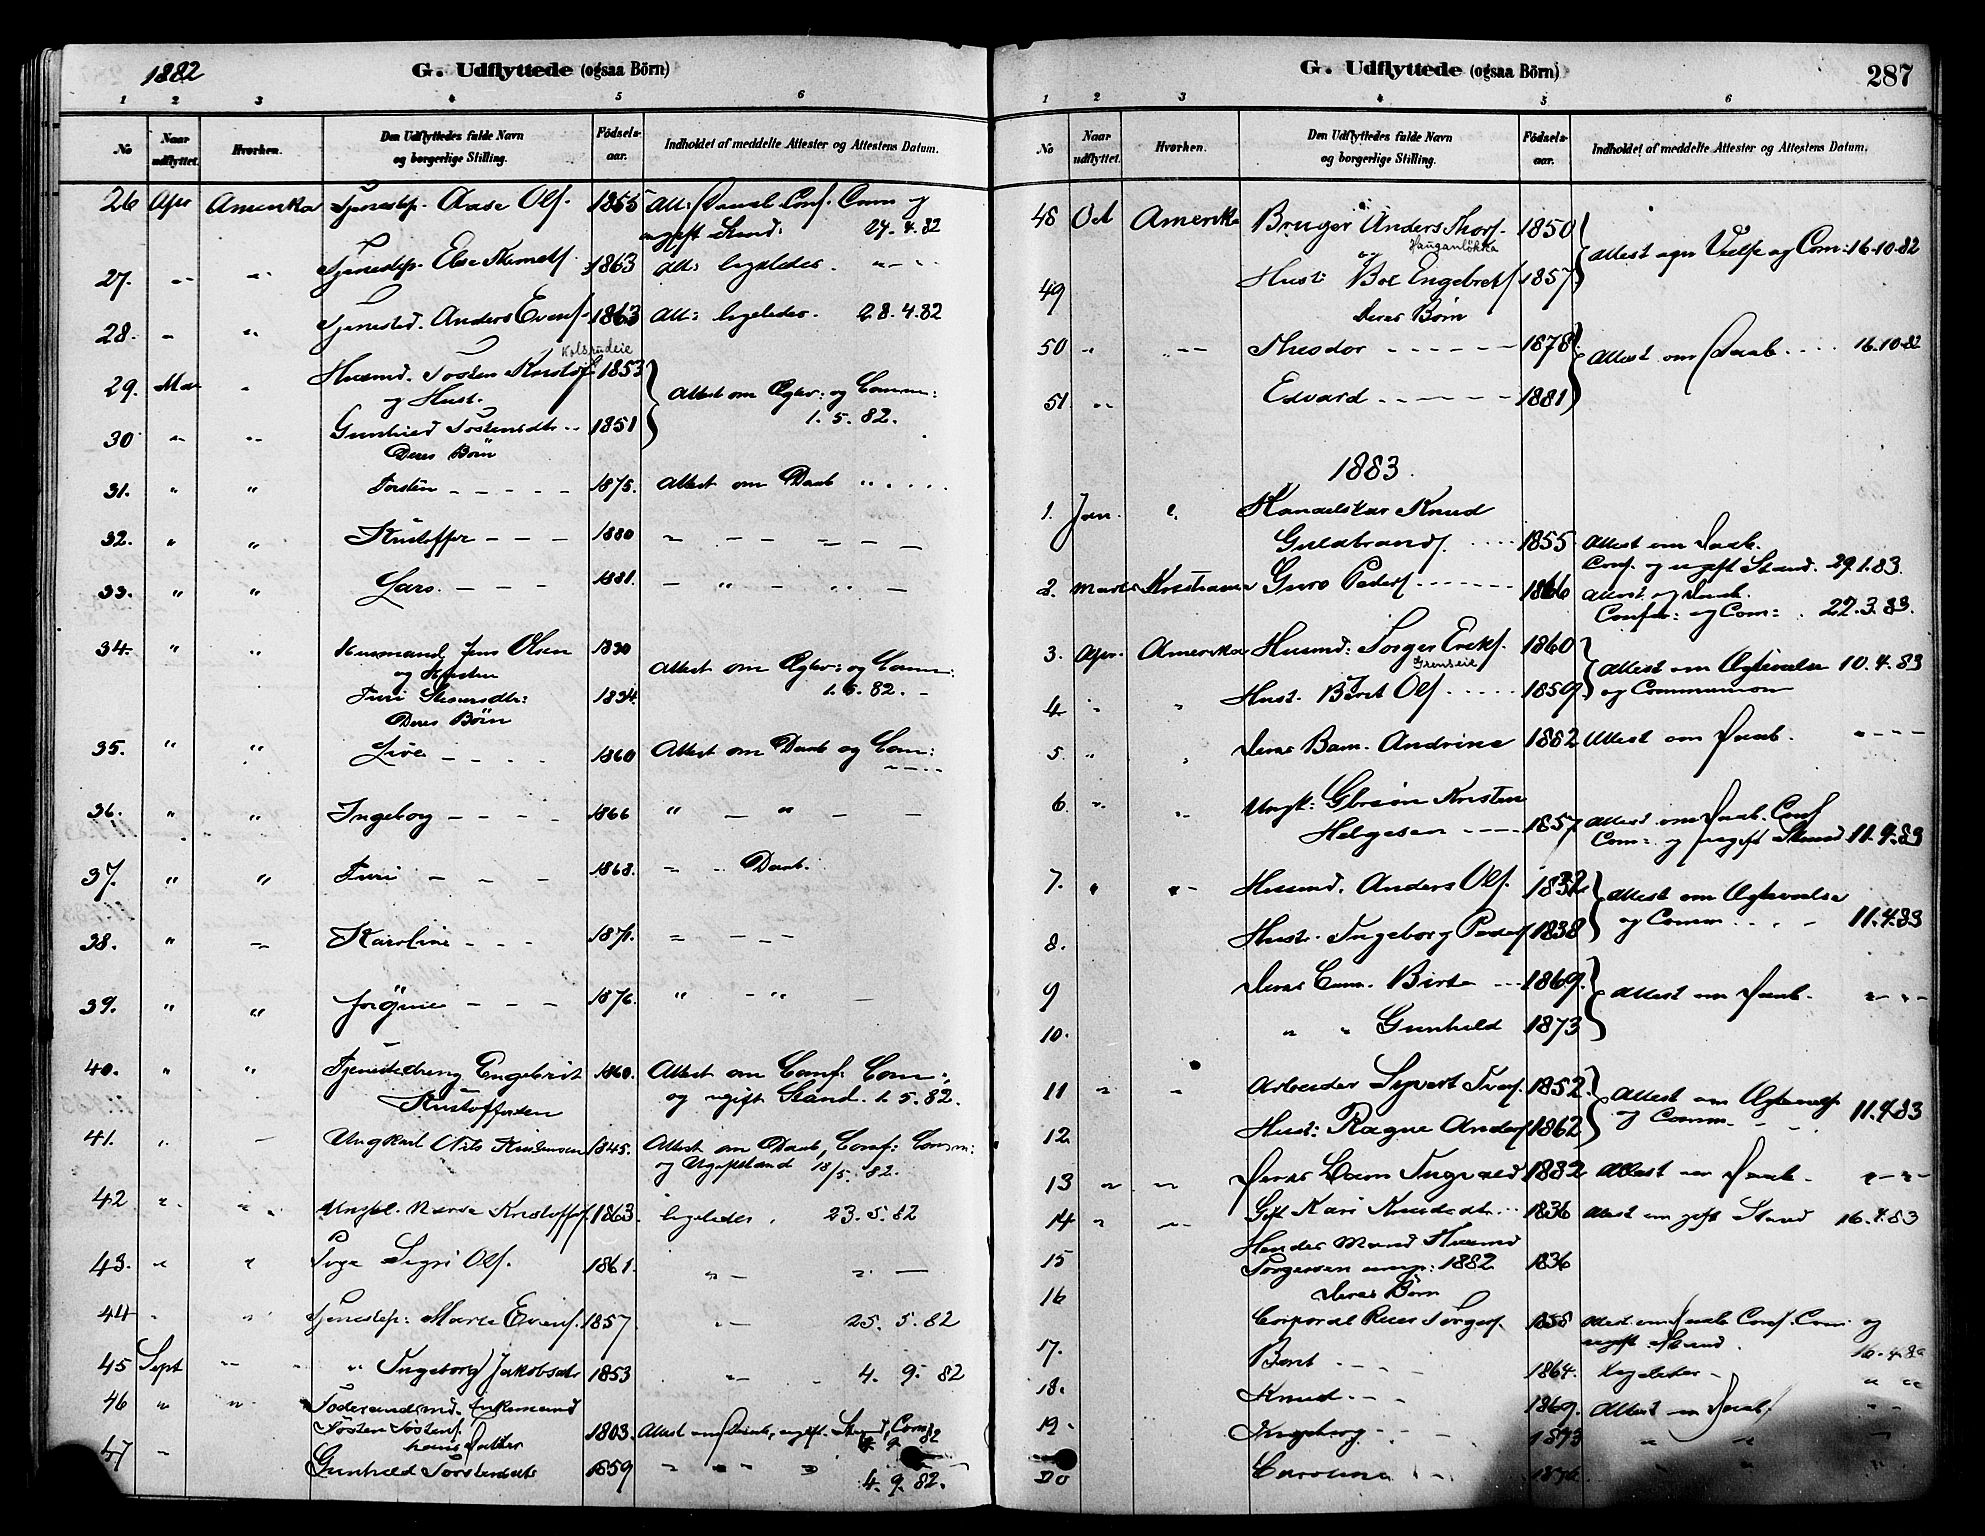 1882
G. Udflyttede (ogsaa Börn)
1 2 3 4 5 6
No
Naar udflyttet.
Hvorhen.
Den Udflyttedes fulde Navn og borgerlige Stilling.
Födsels-aar.
Indholdet af meddelte Attester og Attestens Datum.
26 Apr Amerika Tjenestep. Aase Ols. 1855 Att: Daab Conf. Com og
ugift Stand: 27.4.82
27. " " Tjenestep. Else 1863 Att: ligeledes. " " "
28. " " Tjenested. Anders Evens. 1863 Att: ligeledes. 28.4.82
Kolsrudeie
29. Mai " Husmd. Tosten Kristof 1853 Attest om Ægtev: og Comm:
og Hust. 1.5.82.
30 " " Gunhild Tostensdtr 1851
Deres Börn
31. " " Torsten - - - - 1875. Attest om Daab " . . . .
32. " " Kristoffer - - - 1880 - - - - -
33. " " Lars. - - - 1881. - " - " -
34. " " Husmand Jens Olsen 1830 Attest om Ægtev: og Comm:
og Hustru 1.5.82. -
Turi 1834.
Deres Börn
35. " " Live - - - - 1860 Attest om Daab og Com:
36. " " Ingeborg - - - - 1866 " - " - -
37. " " Turi - - - 1868. - " Daab.
38. " " Karoline - - - 1871. - - - -
39. " " Jørgine - - - 1876. " - " -
40. " " Tjenestedreng Engebret 1860. Attest om Conf: Com:,
Kristoffersen og ugift Stand. 1.5.82.
41. " - Ungkarl Nils Kristensen 1845. Attest om Daab, Conf: Comm:
og Ugiftstand 18/5. 82.
42 " " Kristoffers. 1863. ligeledes. 23.5.82
43. " " Pige Sigri Ols. 1861. " - " -
44 " " Tjenestep: Marie Evens. 1857 " - 25.5.82
45 Sept " " Ingeborg Jakobsdtr 1853 " - 4. 9. 82
46 " " Föderaadsmd. Enkemand
Tosten Tostens. 1803. Attest om Daab, ugift. Stand, Com:
hans Datter 4 9 82
47 " Gunhild Torstensdtr 1859 " " " " 4.9.82.
G. Udflyttede (ogsaa Börn)
287
1 2 3 4 5 6
No
Naar udflyttet.
Hvorhen.
Den Udflyttedes fulde Navn og borgerlige Stilling.
Födsels-aar.
Indholdet af meddelte Attester og Attestens Datum.
48 Oct Amerika Bruger Anders Thors. 1850 Attest Vielse og Com: 16.10.82
og Hauganlökka
49 Hust: Boe Engebrets 1857
Deres Börn
50 " " Theodor - - - - - 1878 Attest om Daab. . . . 16.10.82
51. " Edvard - - - - - 1881
1883.
1. Jan. " Handelskar Knud
Guldbrands. . . . . 1855 Attest om Daab.
Conf. og ugift Stand. 29.1.83.
2. Marts Kristiania Guro Peders - - - - 1866 Attest og Daab.
Confir: og Com: . 22.3.83.
3. Apr. Amerika Husmd: Torger Eriks. 1860 Attest om Ægtevielse 10.4.83
Grenseie og Communion
4 " " Hust. Berit Ols . . . . . 1859.
5. " " Deres Barn. Andrine 1882 Attest om Daab. " - - -
6 " " Ungk: Kristen
Helgesen - - - 1857. Attest om Daab. Conf
Com: og ugift Stand 11.4.83
7. " " Husmd. Anders Ols. 1832 Attest om Ægtevielse
og Comm . . . 11.4.83
8. Hustr. Ingeborg Peders 1838
9 Deres Barn. Birte - - 1869. Attest om Daab. " - " -
10. " " Gunhild 1873
11 " " Arbeider Syvert Ivers. 1852. Attest om Ægtevielse
og Comm. - - 11.4.83
12. Hust: Ragne Anders 1862
13 " " Deres Barn Ingvald 1882 Attest om Daab. " - " -
14 " " Gift Kari Knudsdtr. . . 1836 Attest om gift Stand 16.4.83
15 Hendes Mand
Torgersen 1882 1836
16 Deres Börn
Corporal Torgers. 1858 Attest om Daab Conf. Com: og
ugift Stand. 16.4.83
17. Berit - - - 1864. Ligeledes - " "
18. Knud - - - 1869. Attest om Daab.
19 - Ingeborg - - 1873 " "
20 Caroline - - 1876.